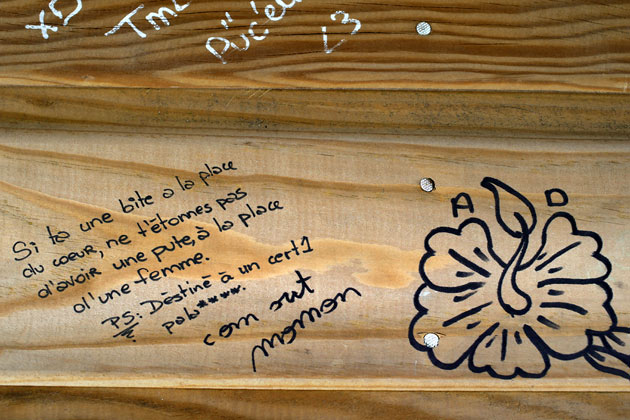 XD
Tmz
Puceu
<3
Si ta une bite a la place
du coeur, ne t'étonnes pas
d'avoir une pute, à la place
d'une femme.
PS: Déstiné à un cert1
pab****.
com sut
momon
A D